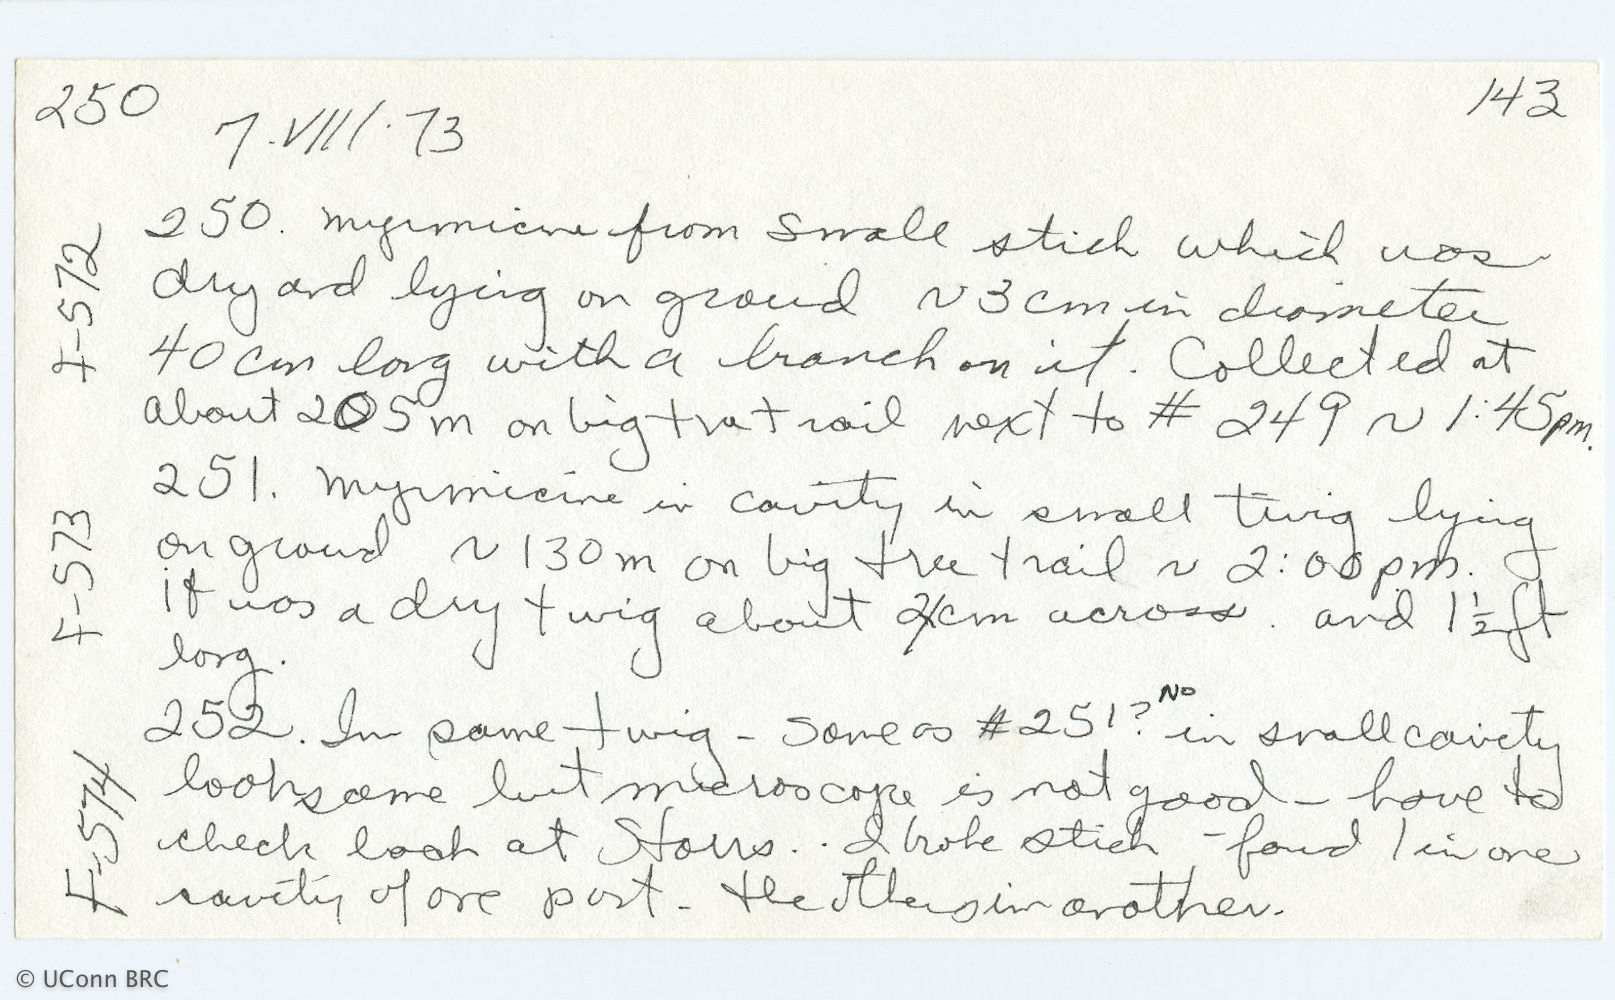 250
143
7.VIII.73
F-572
250. Myrmicine from small stick which was
dry and lying on ground ~3cm in diameter
40cm long with a branch on it. Collected at
about 205m on big tree trail next to # 249 ~ 1:45pm.
F-573
251. Myrmicine in cavity in small twig lying
on ground ~130m on big tree trail ~ 2:00pm.
it was a dry twig about cm across. and 1 1/2 ft
long.
F-574
252. In same twig - same as #251? NO in small cavity
looks same but microscope is not good - have to
check back at Storrs.. I broke stick - found 1 in one
cavity of one part - the others in another.
© UConn BRC